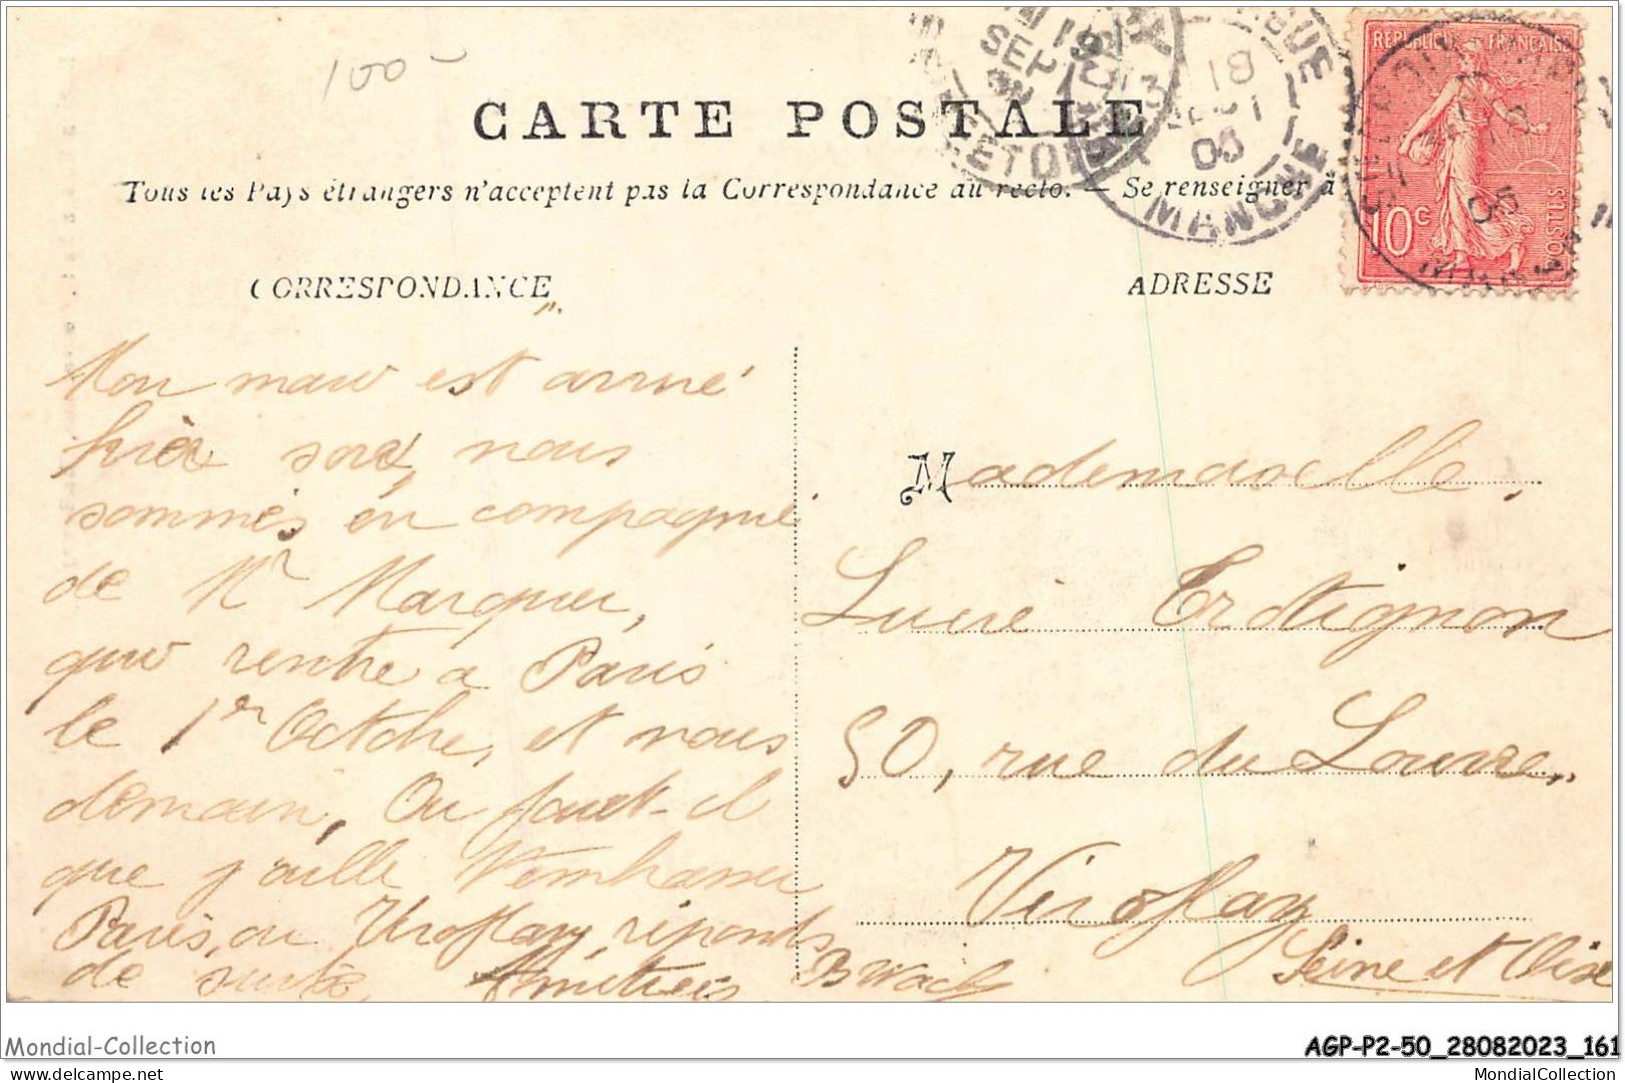 100-
CARTE POSTALE
Tous les Pays étrangers n'acceptent pas la Correspondance au recto. — Se renseigner à
REPUBLIQUE FRANÇAISE
10c
POSTES
MANCHE
18
05
SEPT
CORRESPONDANCE
ADRESSE
Mon mari est arrivé
hier soir, nous
sommes en compagnie
de Mr Marquer,
qui rentre à Paris
le 1er Octobre, et nous
demain. Ou faut-il
que j'aille t'embrasser
Paris, ou Viroflay, réponds
de suite, Amitiés
Mademoiselle,
Lucie Erotignon
50, rue du Louvre,
Viroflay
Seine et Oise
Mondial-Collection
AGP-P2-50_28082023_161
www.mondialcollection.com
MondialCollection